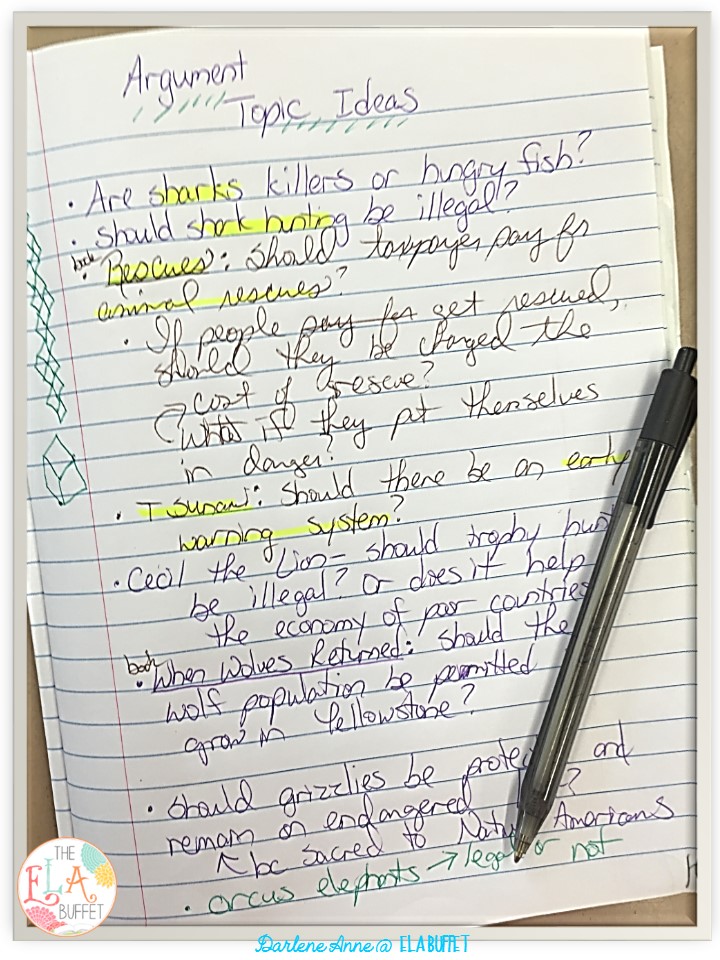 Argument
Topic Ideas
• Are sharks killers or hungry fish?
• Should shark hunting be illegal?
book
• Rescues: Should taxpayer pay for
animal rescues?
• If people pay for get rescued,
should they be charged the
cost of rescue?
What if they put themselves
in danger?
• Tsunami: Should there be an early
warning system?
• Cecil the Lion – should trophy hunt
be illegal? Or does it help
the economy of poor countries
book
• When Wolves Returned: Should the
wolf population be permitted
grow in Yellowstone?
• Should grizzlies be protec and
remain on endangered ?
bc sacred to Nat Americans
• circus elephants → legal or not
THE
ELA
BUFFET
Darlene Anne @ ELA BUFFET